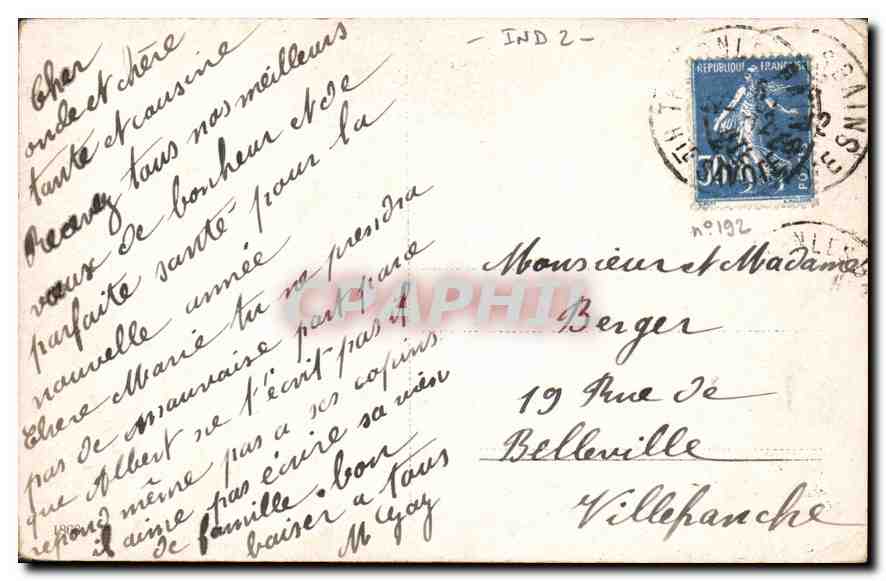 Cher
oncle et chère
tante et cousine
Recevez tous nos meilleurs
vœux de bonheur et de
parfaite santé pour la
nouvelle année
Chere Marie tu ne prendra
pas de mauvaise part parce
que Albert ne t'écrit pas il
repond même pas a ses copins
il aime pas écrire sa vien
de famille. bon
baiser a tous
M Gay
- IND 2 -
REPUBLIQUE FRANÇAISE
n° 192
Monsieur et Madame
Berger
19 Rue de
Belleville
Villefranche
CPAPHIL